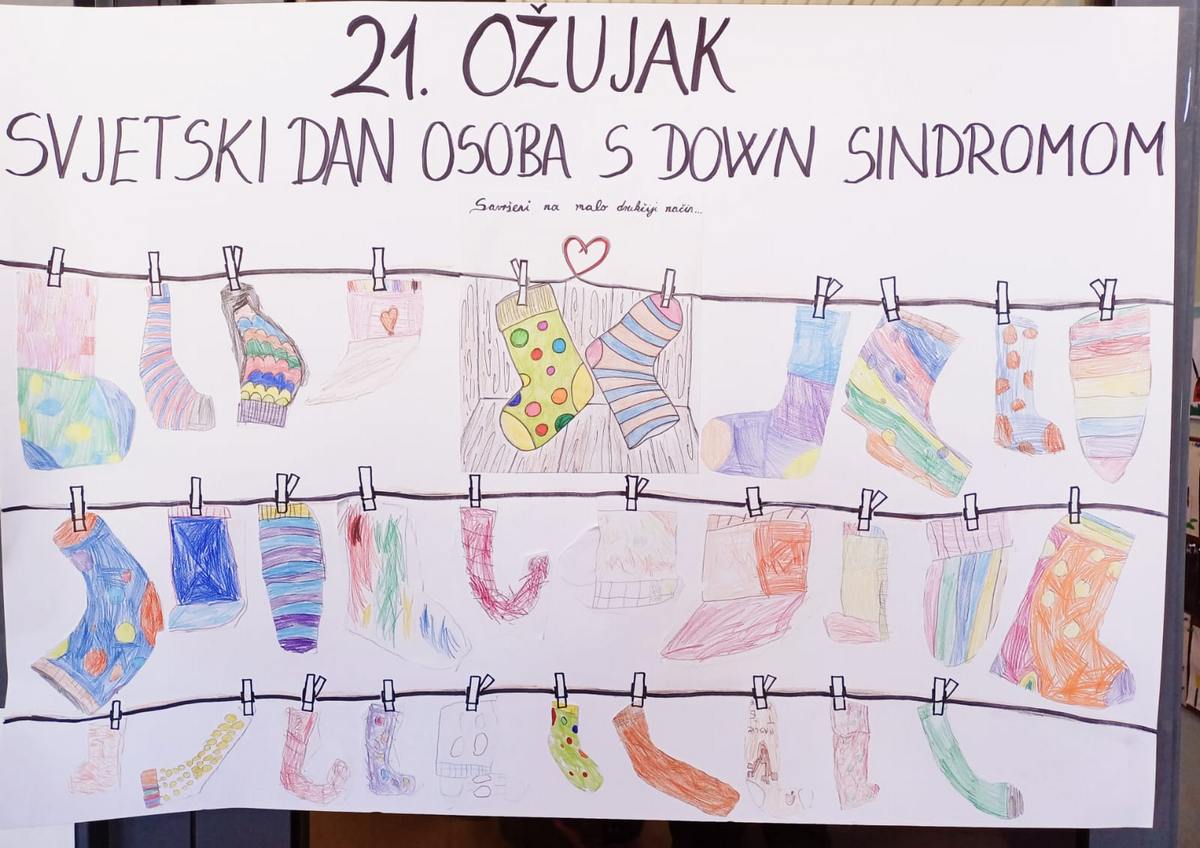 21. OŽUJAK
SVJETSKI DAN OSOBA S DOWN SINDROMOM
Savršeni na malo drukčiji način...